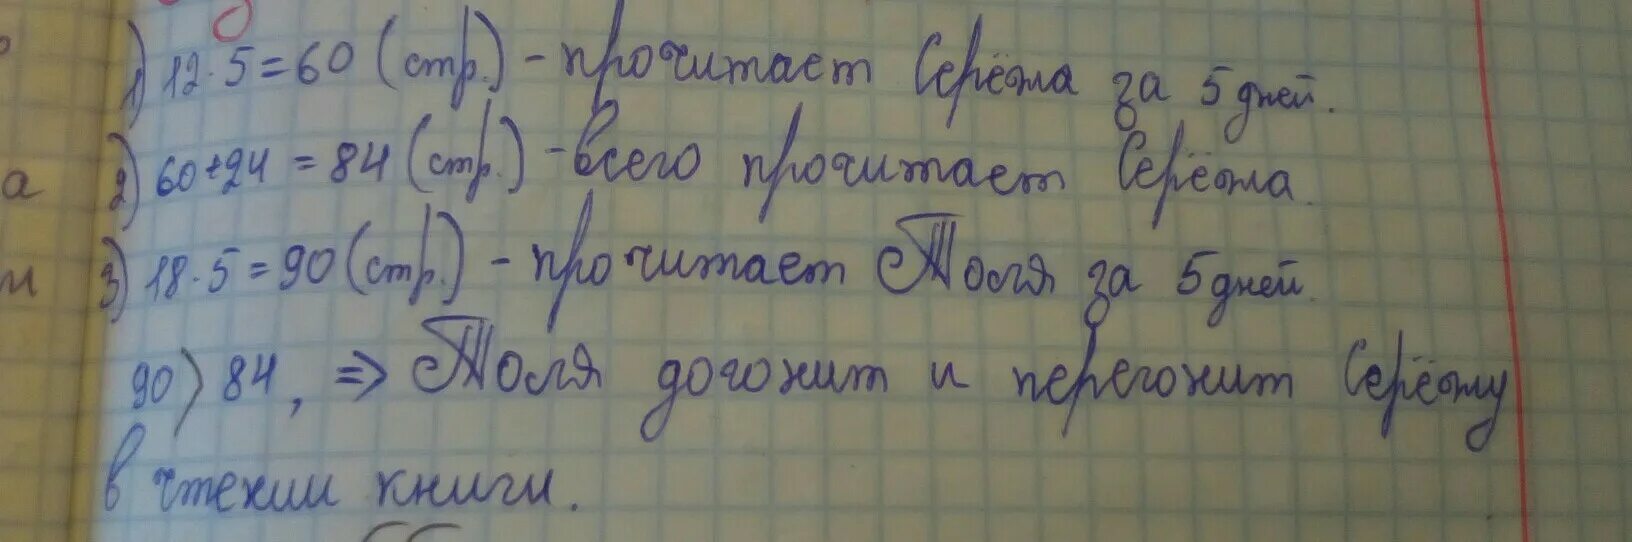 1) 12·5=60 (стр.) - прочитает Серёжа за 5 дней.
а 2) 60+24 = 84 (стр.) - всего прочитает Серёжа.
и 3) 18·5=90 (стр.) - прочитает Толя за 5 дней.
90 > 84, => Толя догонит и перегонит Серёжу
в чтении книги.